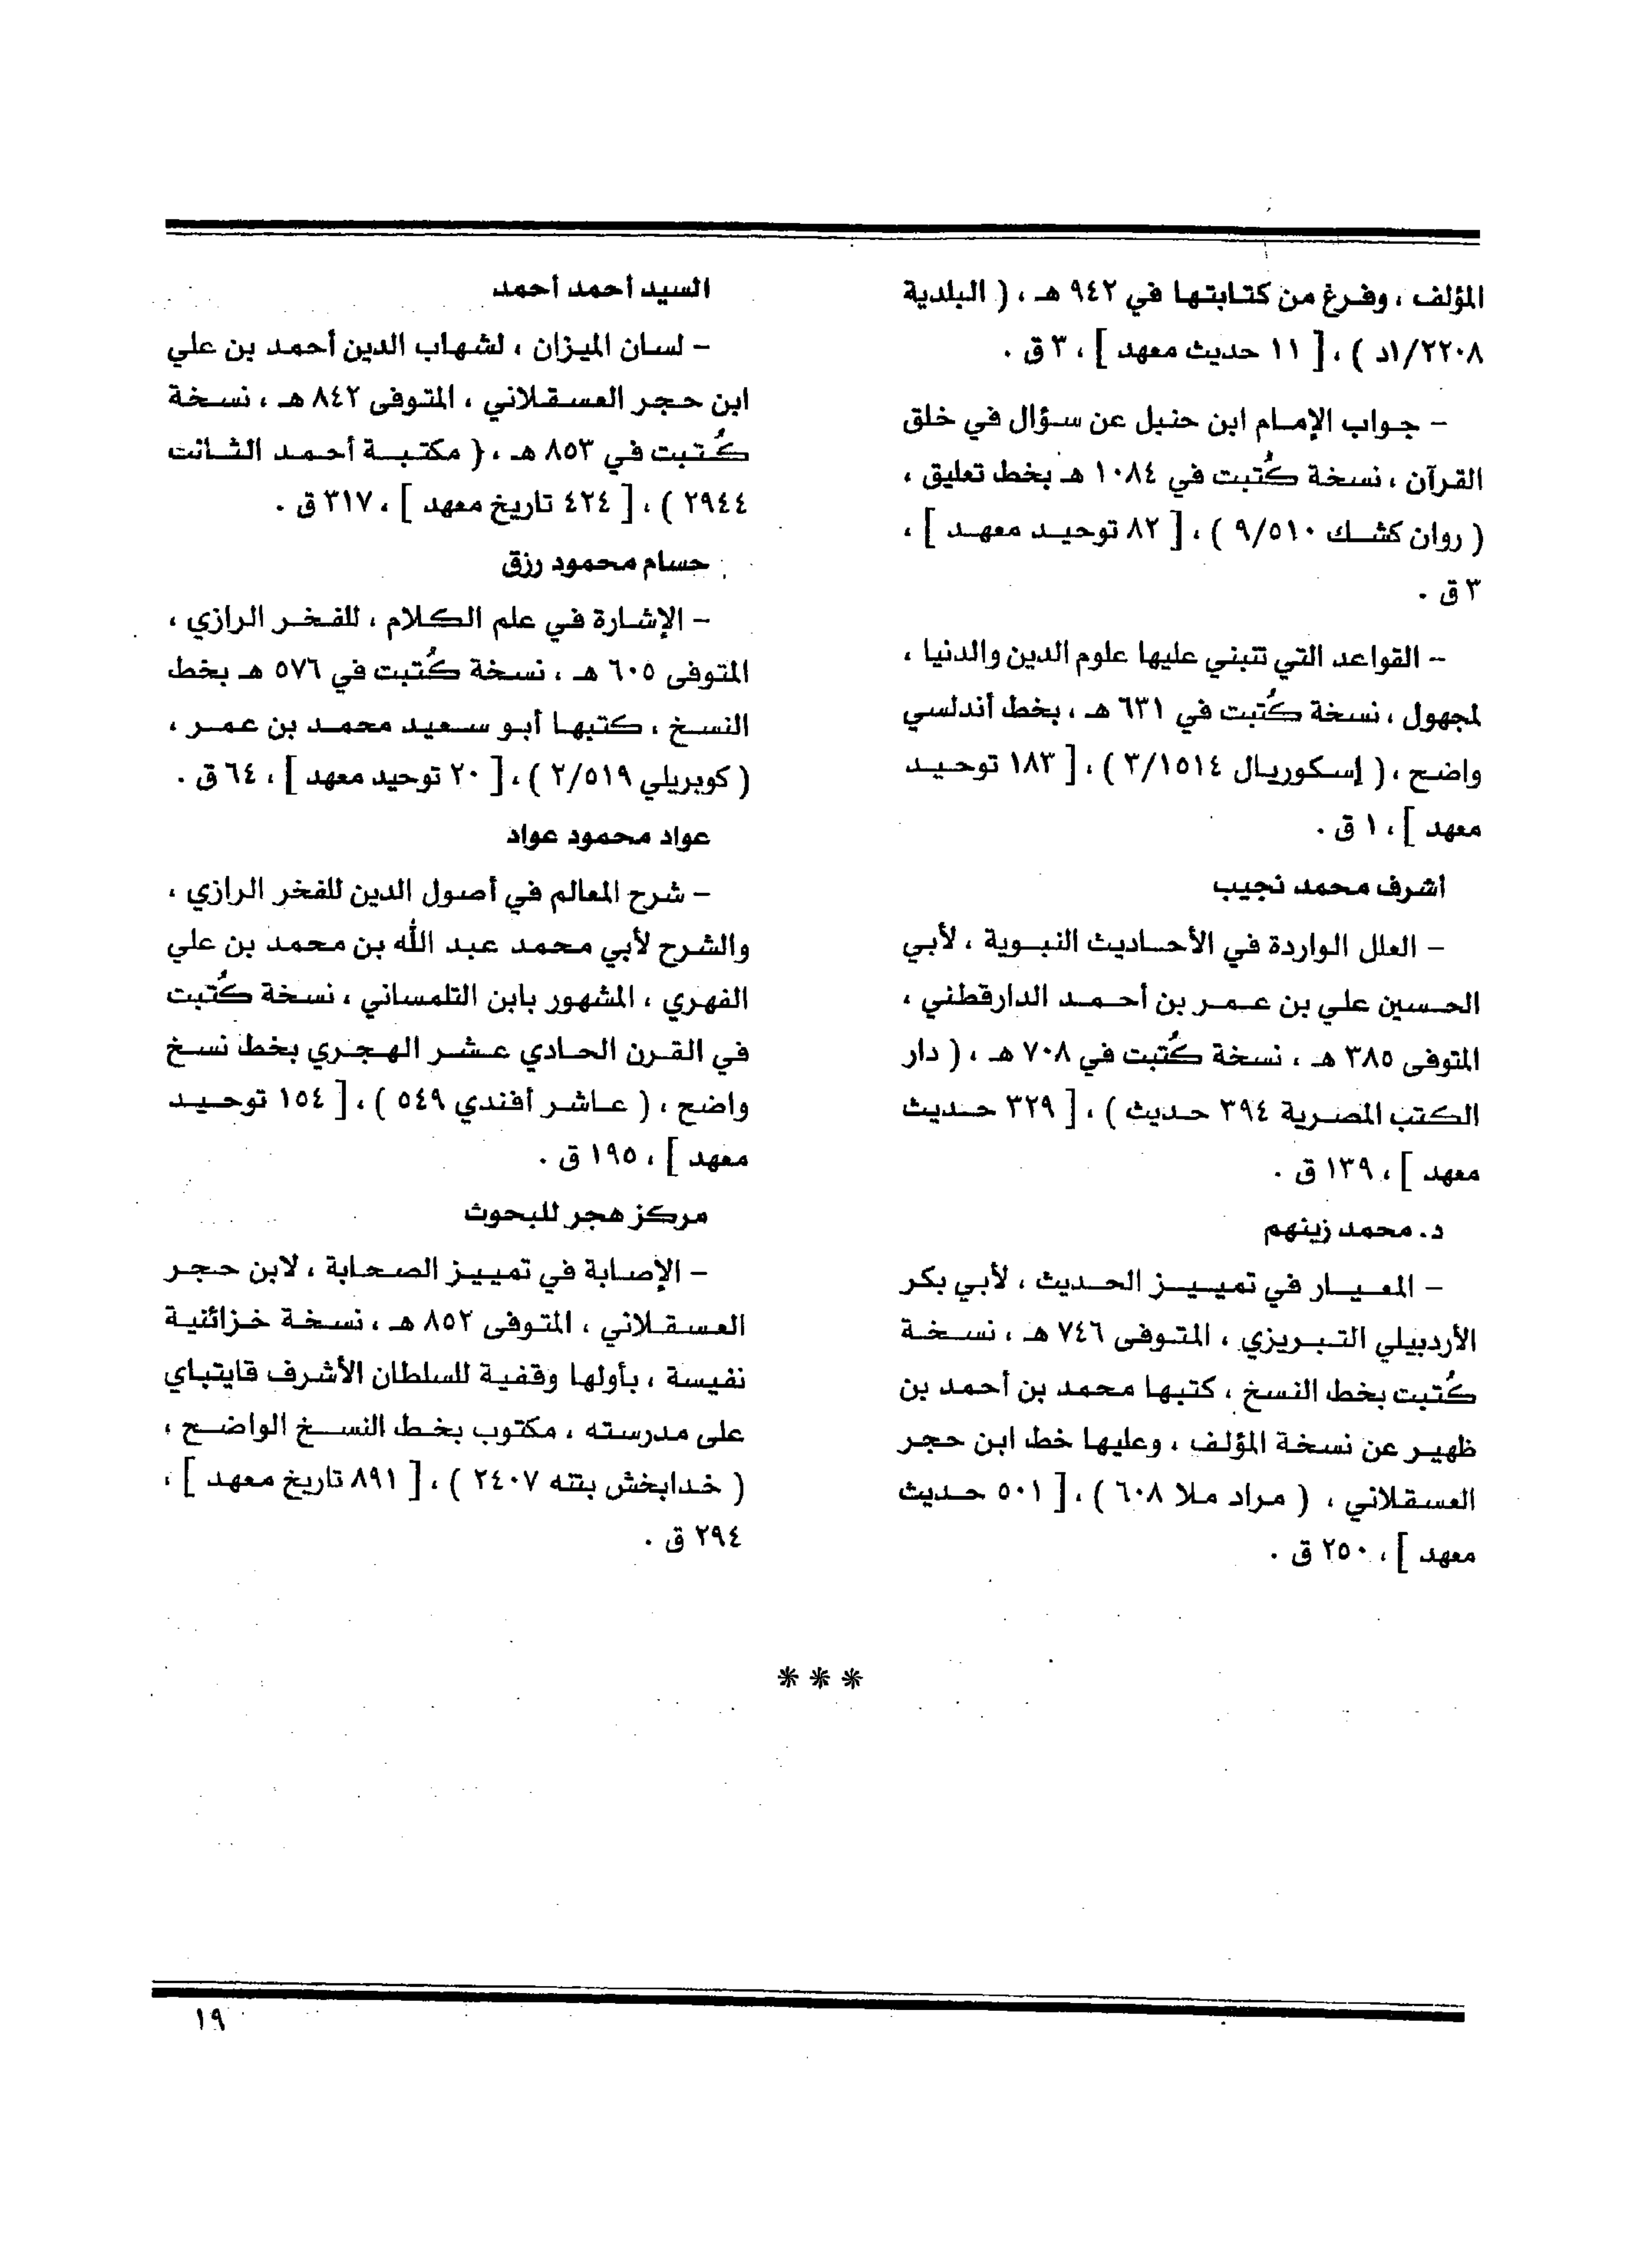 المؤلف ، وفرغ من كتابتها في ٩٤٢ هـ ، ( البلدية
٢٢٠٨/١د ) ، [ ١١ حديث معهد ] ، ٣ ق .
– جواب الإمام ابن حنبل عن سؤال في خلق
القرآن ، نسخة كُتبت في ١٠٨٤ هـ بخط تعليق ،
( روان كشك ٩/٥١٠ ) ، [ ٨٢ توحيد معهد ] ،
٣ ق .
– القواعد التي تتبني عليها علوم الدين والدنيا ،
لمجهول ، نسخة كُتبت في ٦٣١ هـ ، بخط أندلسي
واضح ، ( إسكوريال ٣/١٥١٤ ) ، [ ١٨٣ توحيد
معهد ] ، ١ ق .
أشرف محمد نجيب
– العلل الواردة في الأحاديث النبوية ، لأبي
الحسين علي بن عمر بن أحمد الدارقطني ،
المتوفى ٣٨٥ هـ ، نسخة كُتبت في ٧٠٨ هـ ، ( دار
الكتب المصرية ٣٩٤ حديث ) ، [ ٣٢٩ حديث
معهد ] ، ١٣٩ ق .
د. محمد زينهم
– المعيار في تمييز الحديث ، لأبي بكر
الأردبيلي التبريزي ، المتوفى ٧٤٦ هـ ، نسخة
كُتبت بخط النسخ ، كتبها محمد بن أحمد بن
ظهير عن نسخة المؤلف ، وعليها خط ابن حجر
العسقلاني ، ( مراد ملا ٦٠٨ ) ، [ ٥٠١ حديث
معهد ] ، ٢٥٠ ق .
السيد أحمد أحمد
– لسان الميزان ، لشهاب الدين أحمد بن علي
ابن حجر العسقلاني ، المتوفى ٨٤٢ هـ ، نسخة
كُتبت في ٨٥٣ هـ ، ( مكتبة أحمد الثانت
٢٩٤٤ ) ، [ ٤٢٤ تاريخ معهد ] ، ٣١٧ ق .
حسام محمود رزق
– الإشارة في علم الكلام ، للفخر الرازي ،
المتوفى ٦٠٥ هـ ، نسخة كُتبت في ٥٧٦ هـ بخط
النسخ ، كتبها أبو سعيد محمد بن عمر ،
( كوبريلي ٢/٥١٩ ) ، [ ٢٠ توحيد معهد ] ، ٦٤ ق .
عواد محمود عواد
– شرح المعالم في أصول الدين للفخر الرازي ،
والشرح لأبي محمد عبد الله بن محمد بن علي
الفهري ، المشهور بابن التلمساني ، نسخة كُتبت
في القرن الحادي عشر الهجري بخط نسخ
واضح ، ( عاشر أفندي ٥٤٩ ) ، [ ١٥٤ توحيد
معهد ] ، ١٩٥ ق .
مركز هجر للبحوث
– الإصابة في تمييز الصحابة ، لابن حجر
العسقلاني ، المتوفى ٨٥٢ هـ ، نسخة خزائنية
نفيسة ، بأولها وقفية للسلطان الأشرف قايتباي
على مدرسته ، مكتوب بخط النسخ الواضح ،
( خدابخش بتنه ٢٤٠٧ ) ، [ ٨٩١ تاريخ معهد ] ،
٢٩٤ ق .
***
١٩